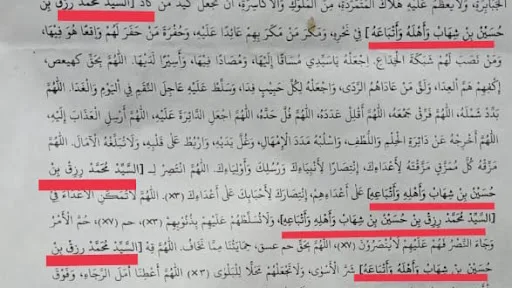 الجَبَابِرَةِ، وَلَا يَعْظُمُ عَلَيْهِ هَلَاكُ الْمُتَمَرِّدَةِ، مِنَ الْمُلُوْكِ وَالْأَكَاسِرَةِ، أَنْ تَجْعَلَ كَيْدَ مَنْ كَادَ [السَّيِّدْ مُحَمَّدْ رِزِقْ بِنْ
حُسَيْنْ بِنْ شِهَابْ وَأَهْلَهُ وَأَتْبَاعَهُ] فِي نَحْرِهِ، وَمَكْرَ مَنْ مَكَرَ بِهِمْ عَائِدًا عَلَيْهِ، وَحُفْرَةَ مَنْ حَفَرَ لَهُمْ وَاقِعًا هُوَ فِيْهَا،
وَمَنْ نَصَبَ لَهُمْ شَبَكَةَ الْخِدَاعِ. اِجْعَلْهُ يَاسَيِّدِي مُسَاقًا إِلَيْهَا، وَمُصَادًا فِيْهَا، وَأَسِيْرًا لَدَيْهَا. اَللّٰهُمَّ بِحَقِّ كهيعص،
اِكْفِهِمْ هَمَّ الْعِدَا، وَلَقِّ مَنْ عَادَاهُمُ الرَّدَى، وَاجْعَلْهُ لِكُلِّ حَبِيْبٍ فِدَا، وَسَلِّطْ عَلَيْهِ عَاجِلَ النِّقَمِ فِي الْيَوْمِ وَالْغَدَا. اَللّٰهُمَّ
بَدِّدْ شَمْلَهُ، اَللّٰهُمَّ فَرِّقْ جَمْعَهُ، اَللّٰهُمَّ أَقْلِلْ عَدَدَهُ، اَللّٰهُمَّ فُلَّ حَدَّهُ، اَللّٰهُمَّ اجْعَلِ الدَّائِرَةَ عَلَيْهِ، اَللّٰهُمَّ أَرْسِلِ الْعَذَابَ إِلَيْهِ،
اَللّٰهُمَّ أَخْرِجْهُ عَنْ دَائِرَةِ الْحِلْمِ وَاللُّطْفِ، وَاسْلُبْهُ مَدَدَ الْإِمْهَالِ، وَغُلَّ يَدَيْهِ، وَارْبُطْ عَلَى قَلْبِهِ، وَلَاتُبَلِّغْهُ الْآمَالَ. اَللّٰهُمَّ
مَزِّقْهُ كُلَّ مُمَزَّقٍ مَزَّقْتَهُ لِأَعْدَائِكَ، إِنْتِصَارًا لِأَنْبِيَائِكَ وَرُسُلِكَ وَأَوْلِيَاءِكَ. اَللّٰهُمَّ انْتَصِرْ لِـ [السَّيِّدْ مُحَمَّدْ رِزِقْ بِنْ
حُسَيْنْ بِنْ شِهَابْ وَأَهْلِهِ وَأَتْبَاعِهِ] عَلَى أَعْدَاءِهِمْ، إِنْتِصَارَكَ لِأَحْبَابِكَ عَلَى أَعْدَاءِكَ (×٣). اَللّٰهُمَّ لَاتُمَكِّنِ الْأَعْدَاءَ فِي
[السَّيِّدْ مُحَمَّدْ رِزِقْ بِنْ حُسَيْنْ بِنْ شِهَابْ وَأَهْلِهِ وَأَتْبَاعِهِ]، وَلَاتُسَلِّطْهُمْ عَلَيْهِمْ بِذُنُوْبِهِمْ (×٣)، حم (×٧)، حُمَّ الْأَمْرُ
وَجَاءَ النَّصْرُ فَهُمْ عَلَيْهِمْ لَايُنْصَرُوْنَ (×٧)، اَللّٰهُمَّ بِحَقِّ حم عسق، حِمَايَتُنَا مِمَّا نَخَافُ. اَللّٰهُمَّ قِهِ [السَّيِّدْ مُحَمَّدْ رِزِقْ بِنْ
حُسَيْنْ بِنْ شِهَابْ وَأَهْلَهُ وَأَتْبَاعَهُ] شَرَّ الْأَسْوَى، وَلَاتَجْعَلْهُمْ مَحَلًّا لِلْبَلْوَى (×٣) اَللّٰهُمَّ أَعْطِنَا أَمَلَ الرَّجَاءِ، وَفَوْقَ